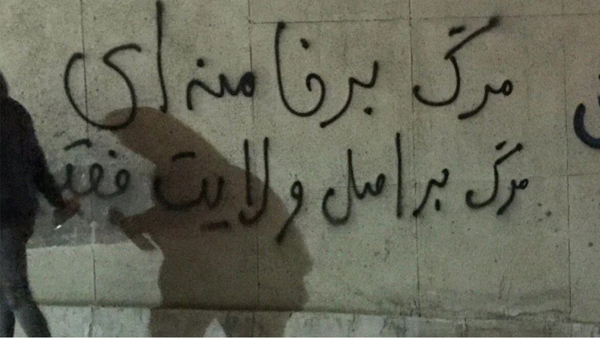 مرگ بر خامنه‌ای
مرگ بر اصل ولایت فقیـ